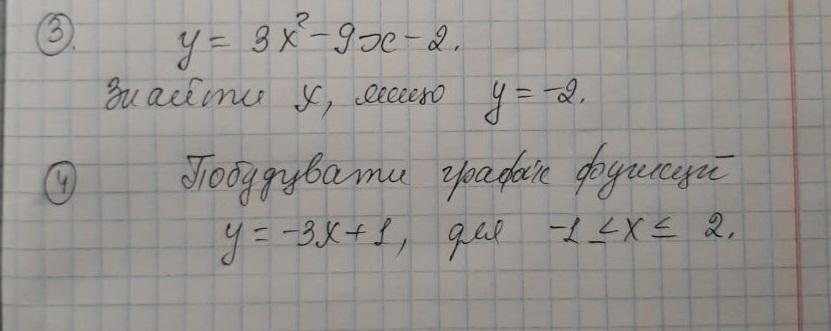 ③. y = 3x² - 9x - 2.
Знайти x, якщо y = -2.
④ Побудувати графік функції
y = -3x + 1, для -1 ≤ x ≤ 2.